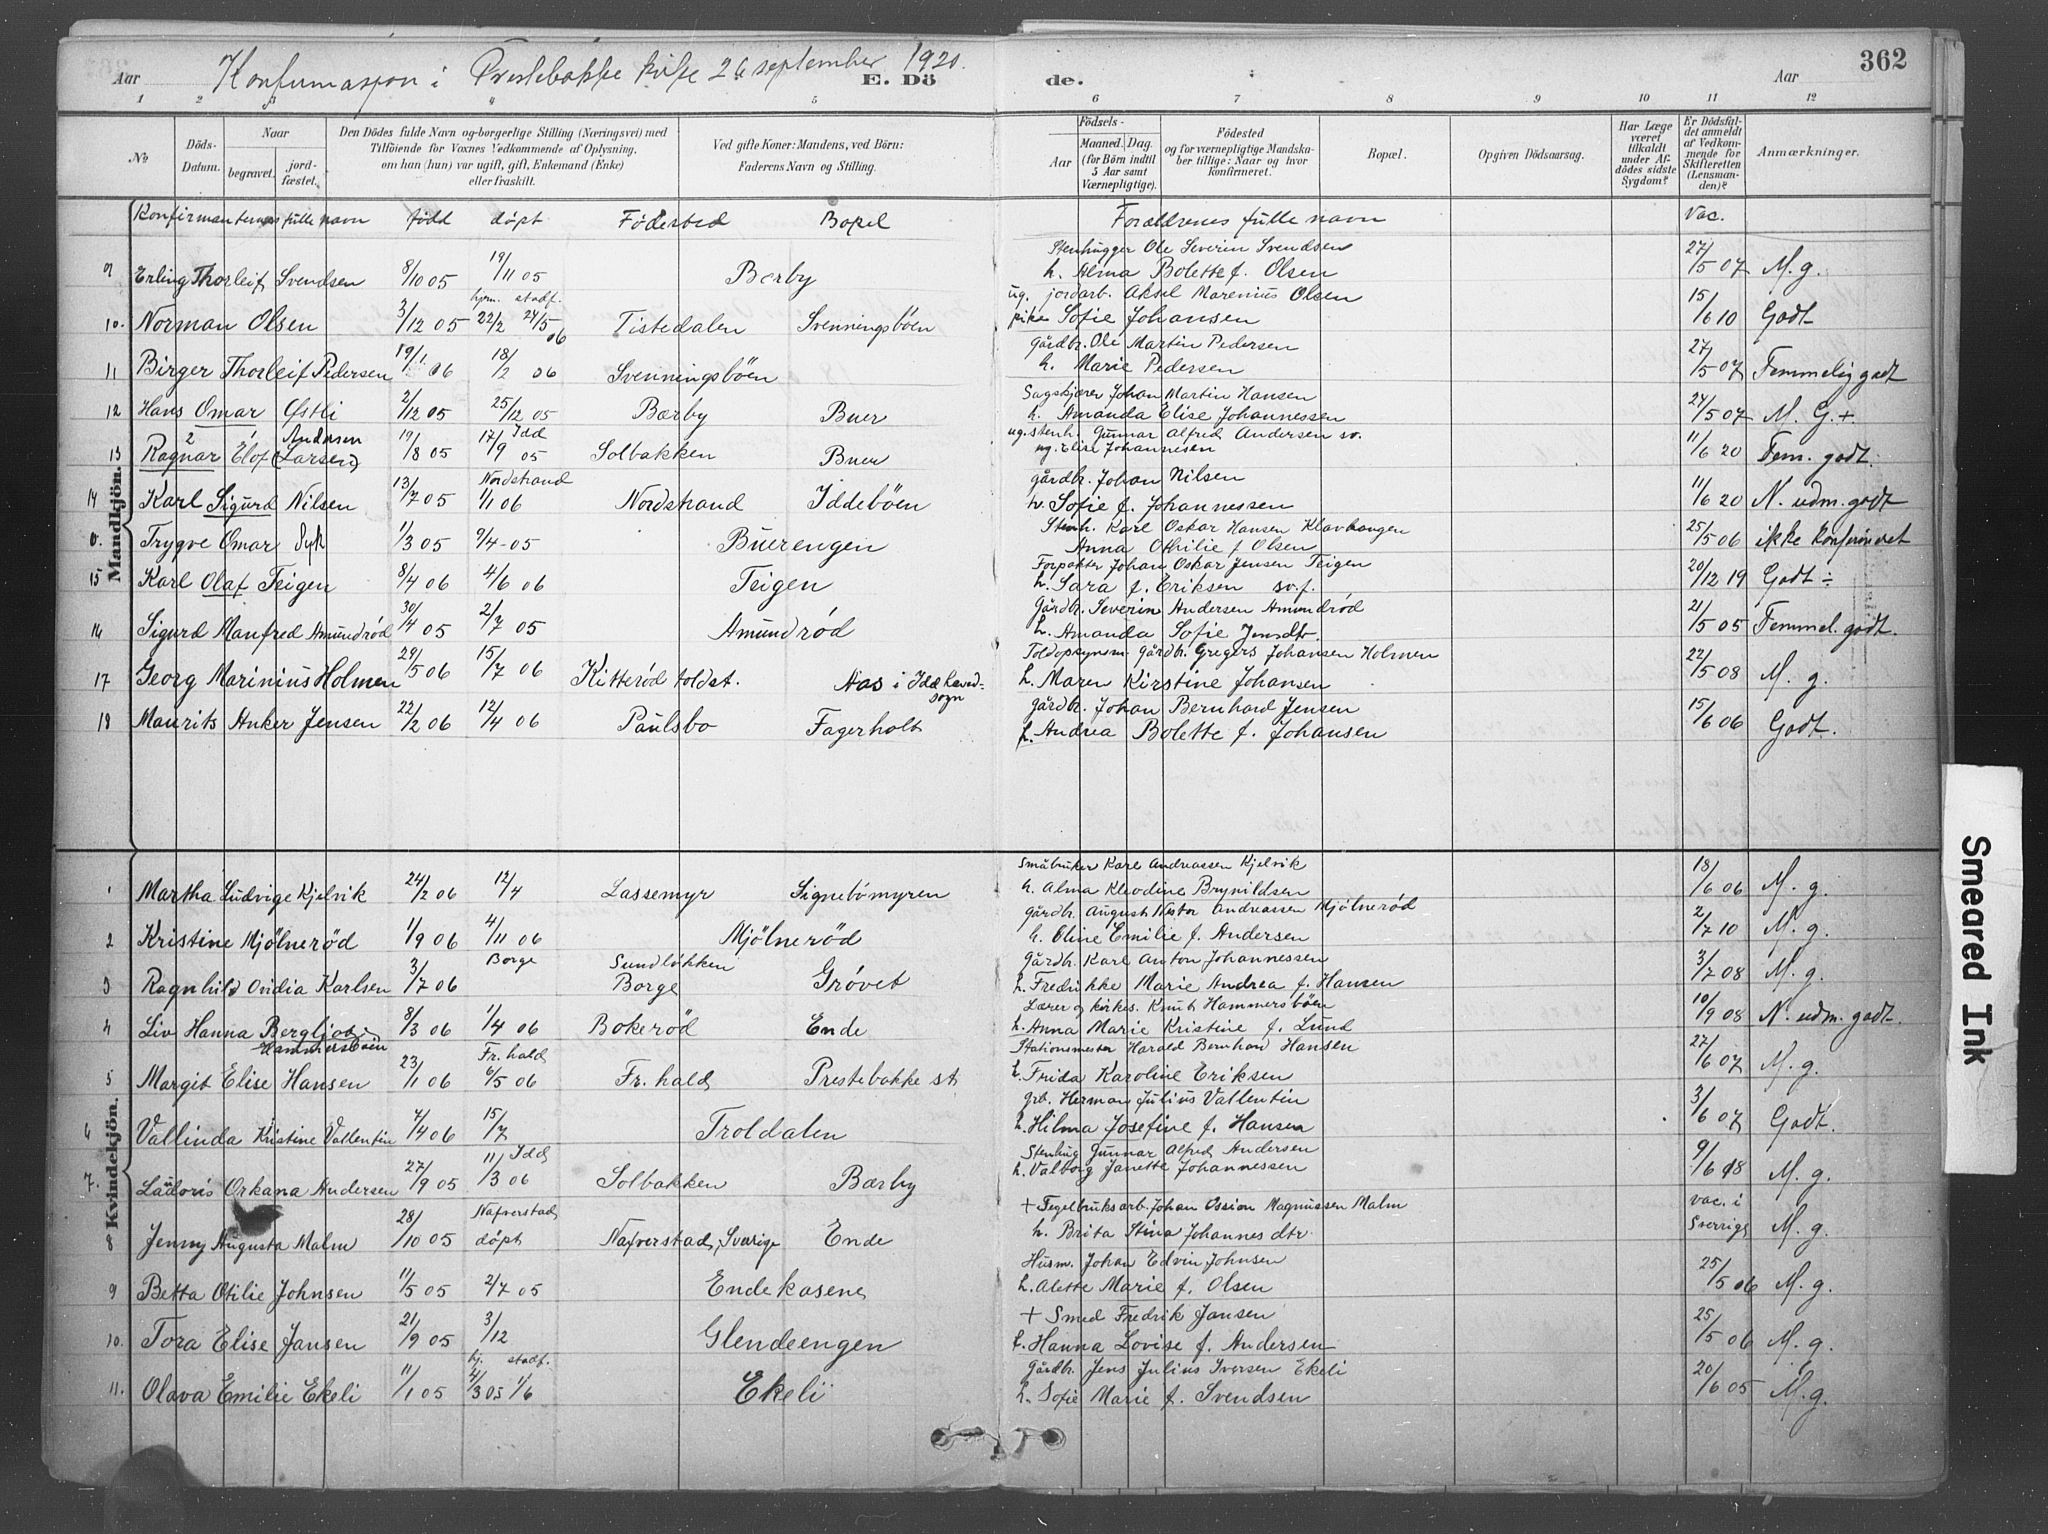 Konfirmasjon i Prestebakke kirke 26 september 1920.
362
Aar E. Dö de. Aar
1 2 3 4 5 6 7 8 9 10 11 12
No
Döds-Datum.
Naar begravet. jord-fæstet.
Den Dödes fulde Navn og borgerlige Stilling (Næringsvei) med Tilföiende for Voxnes Vedkommende af Oplysning, om han (hun) var ugift, gift, Enkemand (Enke) eller fraskilt.
Ved gifte Koner: Mandens, ved Börn: Faderens Navn og Stilling.
Födsels- Aar Maaned. Dag. (for Börn indtil 5 Aar samt Værnepligtige).
Födested og for værnepligtige Mandskaber tillige: Naar og hvor konfirmeret.
Bopæl.
Opgiven Dödsaarsag.
Har Læge været tilkaldt under Afdödes sidste Sygdom?
Er Dödsfaldet anmeldt af Vedkommende for Skifteretten (Lensmanden)?
Anmærkninger.
Konfirmanternes fulle navn född döpt Födested Bopel Forældrenes fulle navn Vac.
Mandkjön.
Stenhugger Ole Severin Svendsen
9 Erling Thorleif Svendsen 8/10 05 19/11 05 Berby h. Alma Bolette f. Olsen 27/5 07 M. g.
hjem. stadf. ug. jordarb. Aksel Marenius Olsen
10. Norman Olsen 3/12 05 22/2 24/5 06 Tistedalen Svenningsböen pike Sofie Johansen 15/6 10 Godt
gårdbr. Ole Martin Pedersen
11 Birger Thorleif Pedersen 19/1 06 18/2 06 Svenningsböen h. Marie Pedersen 27/5 07 Temmelig godt
Sagskjærer Johan Martin Hansen
12 Hans Omar Østli 2/12 05 25/12 05 Bærby Buer h. Amanda Elise Johannessen 24/5 07 M. G. +
2 1 Andersen Idd ug. stenh. Gunnar Alfred Andersen sv.
13 Ragnar Elof (Larsen) 19/8 05 17/9 05 Solbakken Buer ug. Elise Johannesen 11/6 20 Tem. godt.
Nordstrand gårdbr. Johan Nilsen
14 Karl Sigurd Nilsen 13/7 05 1/1 06 Nordstrand Iddeböen h. Sofie f. Johannessen 11/6 20 N. udm. godt
Stenh. Karl Oskar Hansen Klavhaugen
0. Trygve Omar Syk 1/3 05 9/4-05 Buerengen Anna Othilie f Olsen 25/5 06 ikke konfirmeret
Forpakter Johan Oskar Jensen Teigen
15 Karl Olaf Teigen 8/4 06 4/6 06 Teigen h. Sara f. Eriksen sv. f. 20/12 19 Godt ÷
Gårdbr. Severin Andersen Amundrød
16 Sigurd Manfred Amundrød 30/4 05 2/7 05 Amundrød h. Amanda Sofie Jensdtr. 21/5 05 Temmel. godt.
Toldopsynsm. gårdbr. Gregers Johansen Holmen
17 Georg Marinius Holmen 29/5 06 15/7 06 Kitterød toldst. Aas i Idd hovedsogn h. Maren Kirstine Johansen 22/5 08 M. g.
gårdbr. Johan Bernhard Jensen
18 Maurits Anker Jensen 22/2 06 12/4 06 Paulsbo Fagerholt h. Andrea Bolette f. Johansen 15/6 06 Godt.
Kvindekjön.
Småbruker Karl Andreassen Kjelvik
1 Martha Ludvige Kjelvik 24/2 06 12/4 Lassemyr Signebömyren h. Alma Klaodine Brynildsen 18/6 06 M. g.
gårdbr. August Nestor Andreassen Mjölnerød
2 Kristine Mjölnerød 1/9 06 4/11 06 Mjölnerød h. Oline Emilie f. Andersen 2/7 10 M. g.
Borge Sundlökken gårdbr. Karl Anton Johannessen
3 Ragnhild Ovidia Karlsen 3/7 06 Borge Grövet h. Fredrikke Marie Andrea f. Hansen 3/7 08 M. g.
Lærer og kirkes. Knut Hammersböen
4 Liv Hanna Bergljot Hammersböen 8/3 06 1/4 06 Bokerød Ende h. Anna Marie Kristine f. Lund 10/9 08 N. udm. godt.
Fr. hald Stationsmester Harald Bernhard Hansen
5 Margit Elise Hansen 23/1 06 6/5 06 Fr. hald Prestebakke st h. Frida Karoline Eriksen 27/6 07 M. g.
grb. Herman Julius Vallentin
6 Vallinda Kristine Vallentin 4/4 06 15/7 Troldalen h. Hilma Josefine f. Hansen 3/6 07 Godt.
Idd Stenhug Gunnar Alfred Andersen
7. Ladoris Orkana Andersen 27/9 05 11/3 06 Solbakken Bærby h. Valborg Janette Johannessen 9/6 08 M. g.
Nafverstad + Tegelbruksarb. Johan Ossian Magnussen Malm vac. i
8 Jenny Augusta Malm 28/10 05 döpt Nafverstad, Sverige Ende h. Brita Stina Johannesdtr. Sverige M. g.
Husm. Johan Edvin Johnsen
9 Betta Otilie Johnsen 11/5 05 2/7 05 Endekasene h. Alette Marie f. Olsen 25/5 06 M. g.
+ Smed Fredrik Jansen
10. Tora Elise Jansen 21/9 05 3/12 Glendeengen h. Hanna Lovise f. Andersen 25/5 06 M. g.
hj. stadf. Gårdbr. Jens Julius Iversen Ekeli
11. Olava Emilie Ekeli 11/1 05 4/3 05 1/6 Ekeli h. Sofie Marie f. Svendsen 20/6 05 M. g.
Smeared Ink